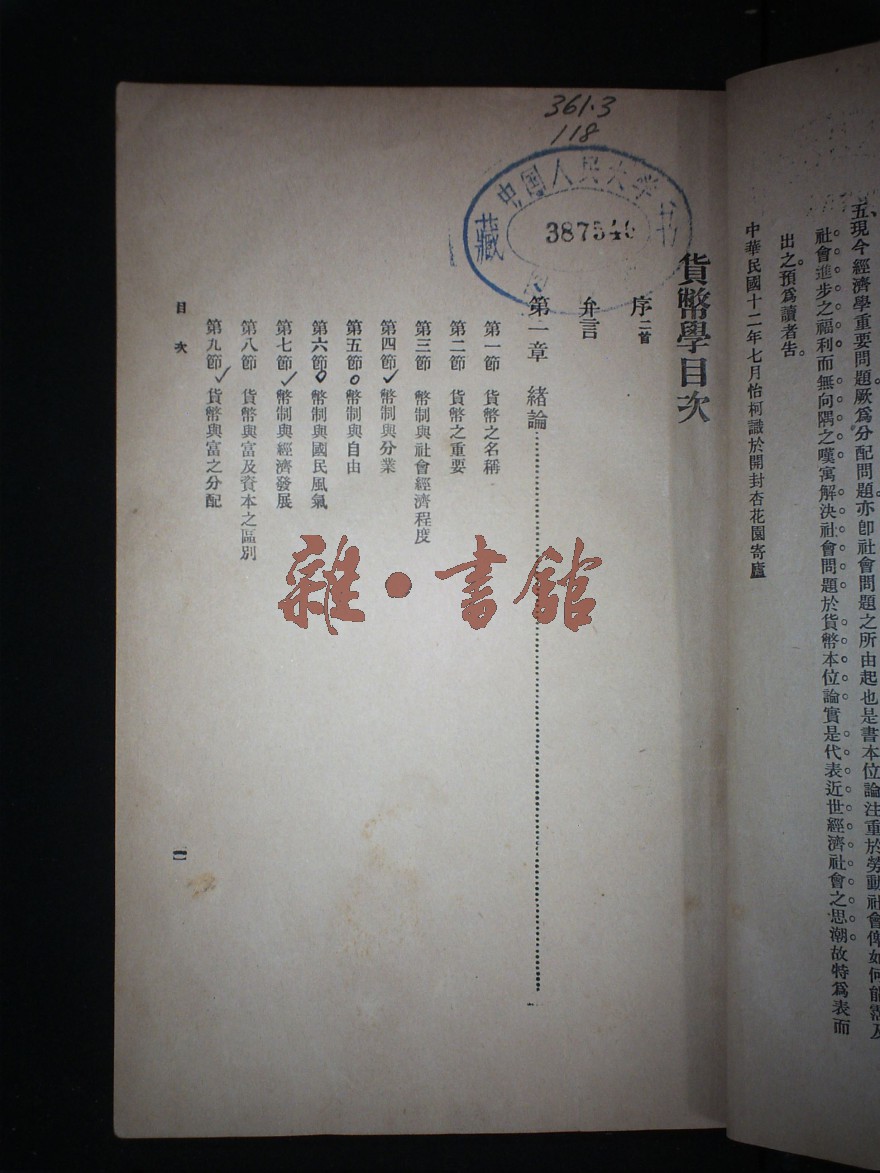 五、現今經濟學重要問題。厥為分配問題。亦即社會問題之所由起也是書本位論注重於勞動社會俾如何能
社會進步之福利而無向隅之嘆寓解決社會問題於貨幣本位論實是代表近世經濟社會之思潮故特為表而
出之。預為讀者告。
中華民國十二年七月怡柯識於開封杏花園寄廬
361.3
118
中国人民大学
藏
书
38754
貨幣學目次
序二首
弁言
第一章 緒論…………一
第一節 貨幣之名稱
第二節 貨幣之重要
第三節 幣制與社會經濟程度
第四節 幣制與分業
第五節 幣制與自由
第六節 幣制與國民風氣
第七節 幣制與經濟發展
第八節 貨幣與富及資本之區別
第九節 貨幣與富之分配
目次
一
雜·書館